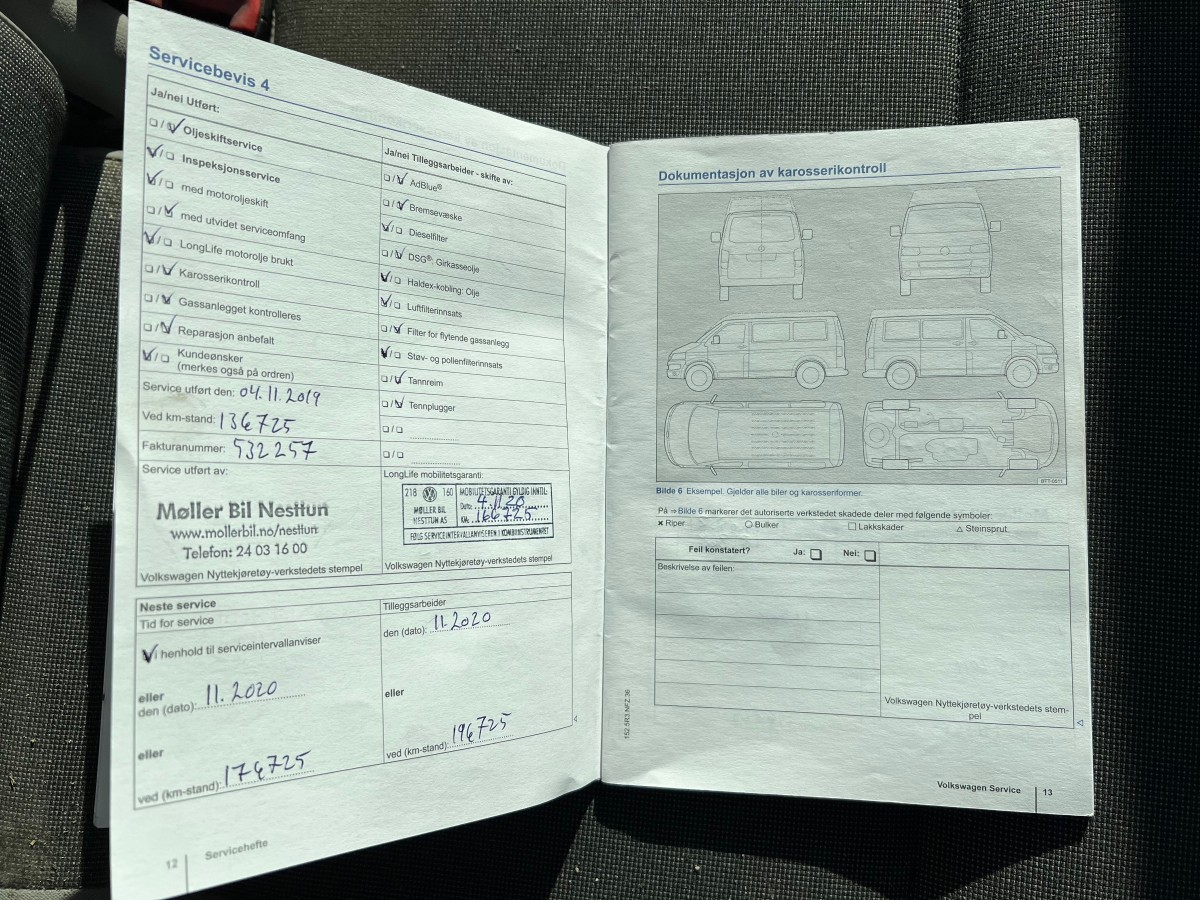 Servicebevis 4
Ja/nei Utført:
Oljeskiftservice
Inspeksjonsservice
med motoroljeskift
med utvidet serviceomfang
LongLife motorolje brukt
Karosserikontroll
Gassanlegget kontrolleres
Reparasjon anbefalt
Kundeønsker
(merkes også på ordren)
Service utført den: 04.11.2019
Ved km-stand: 136725
Fakturanummer: 532257
Service utført av:
Møller Bil Nesttun
www.mollerbil.no/nesttun
Telefon: 24 03 16 00
Volkswagen Nyttekjøretøy-verkstedets stempel
Ja/nei Tilleggsarbeider - skifte av:
AdBlue®
Bremsevæske
Dieselfilter
DSG®: Girkasseolje
Haldex-kobling: Olje
Luftfilterinnsats
Filter for flytende gassanlegg
Støv- og pollenfilterinnsats
Tannreim
Tennplugger
LongLife mobilitetsgaranti:
218 160
MØLLER BIL
NESTTUN AS
MOBILITETSGARANTI GYLDIG INNTIL:
Dato: 4.11.20
KM: 166725
FØLG SERVICEINTERVALLANVISEREN I KOMBIINSTRUMENTET
Volkswagen Nyttekjøretøy-verkstedets stempel
Neste service
Tid for service
i henhold til serviceintervallanviser
eller
den (dato): 11.2020
eller
ved (km-stand): 176725
Tilleggsarbeider
den (dato): 11.2020
eller
ved (km-stand): 196725
12 Servicehefte
Dokumentasjon av karosserikontroll
BTT-0511
Bilde 6 Eksempel. Gjelder alle biler og karosseriformer.
På ⇒ Bilde 6 markerer det autoriserte verkstedet skadede deler med følgende symboler:
× Riper ○ Bulker □ Lakkskader △ Steinsprut
Feil konstatert? Ja: □ Nei: □
Beskrivelse av feilen:
Volkswagen Nyttekjøretøy-verkstedets stem-
pel
152.5R3.NFZ.36
Volkswagen Service 13